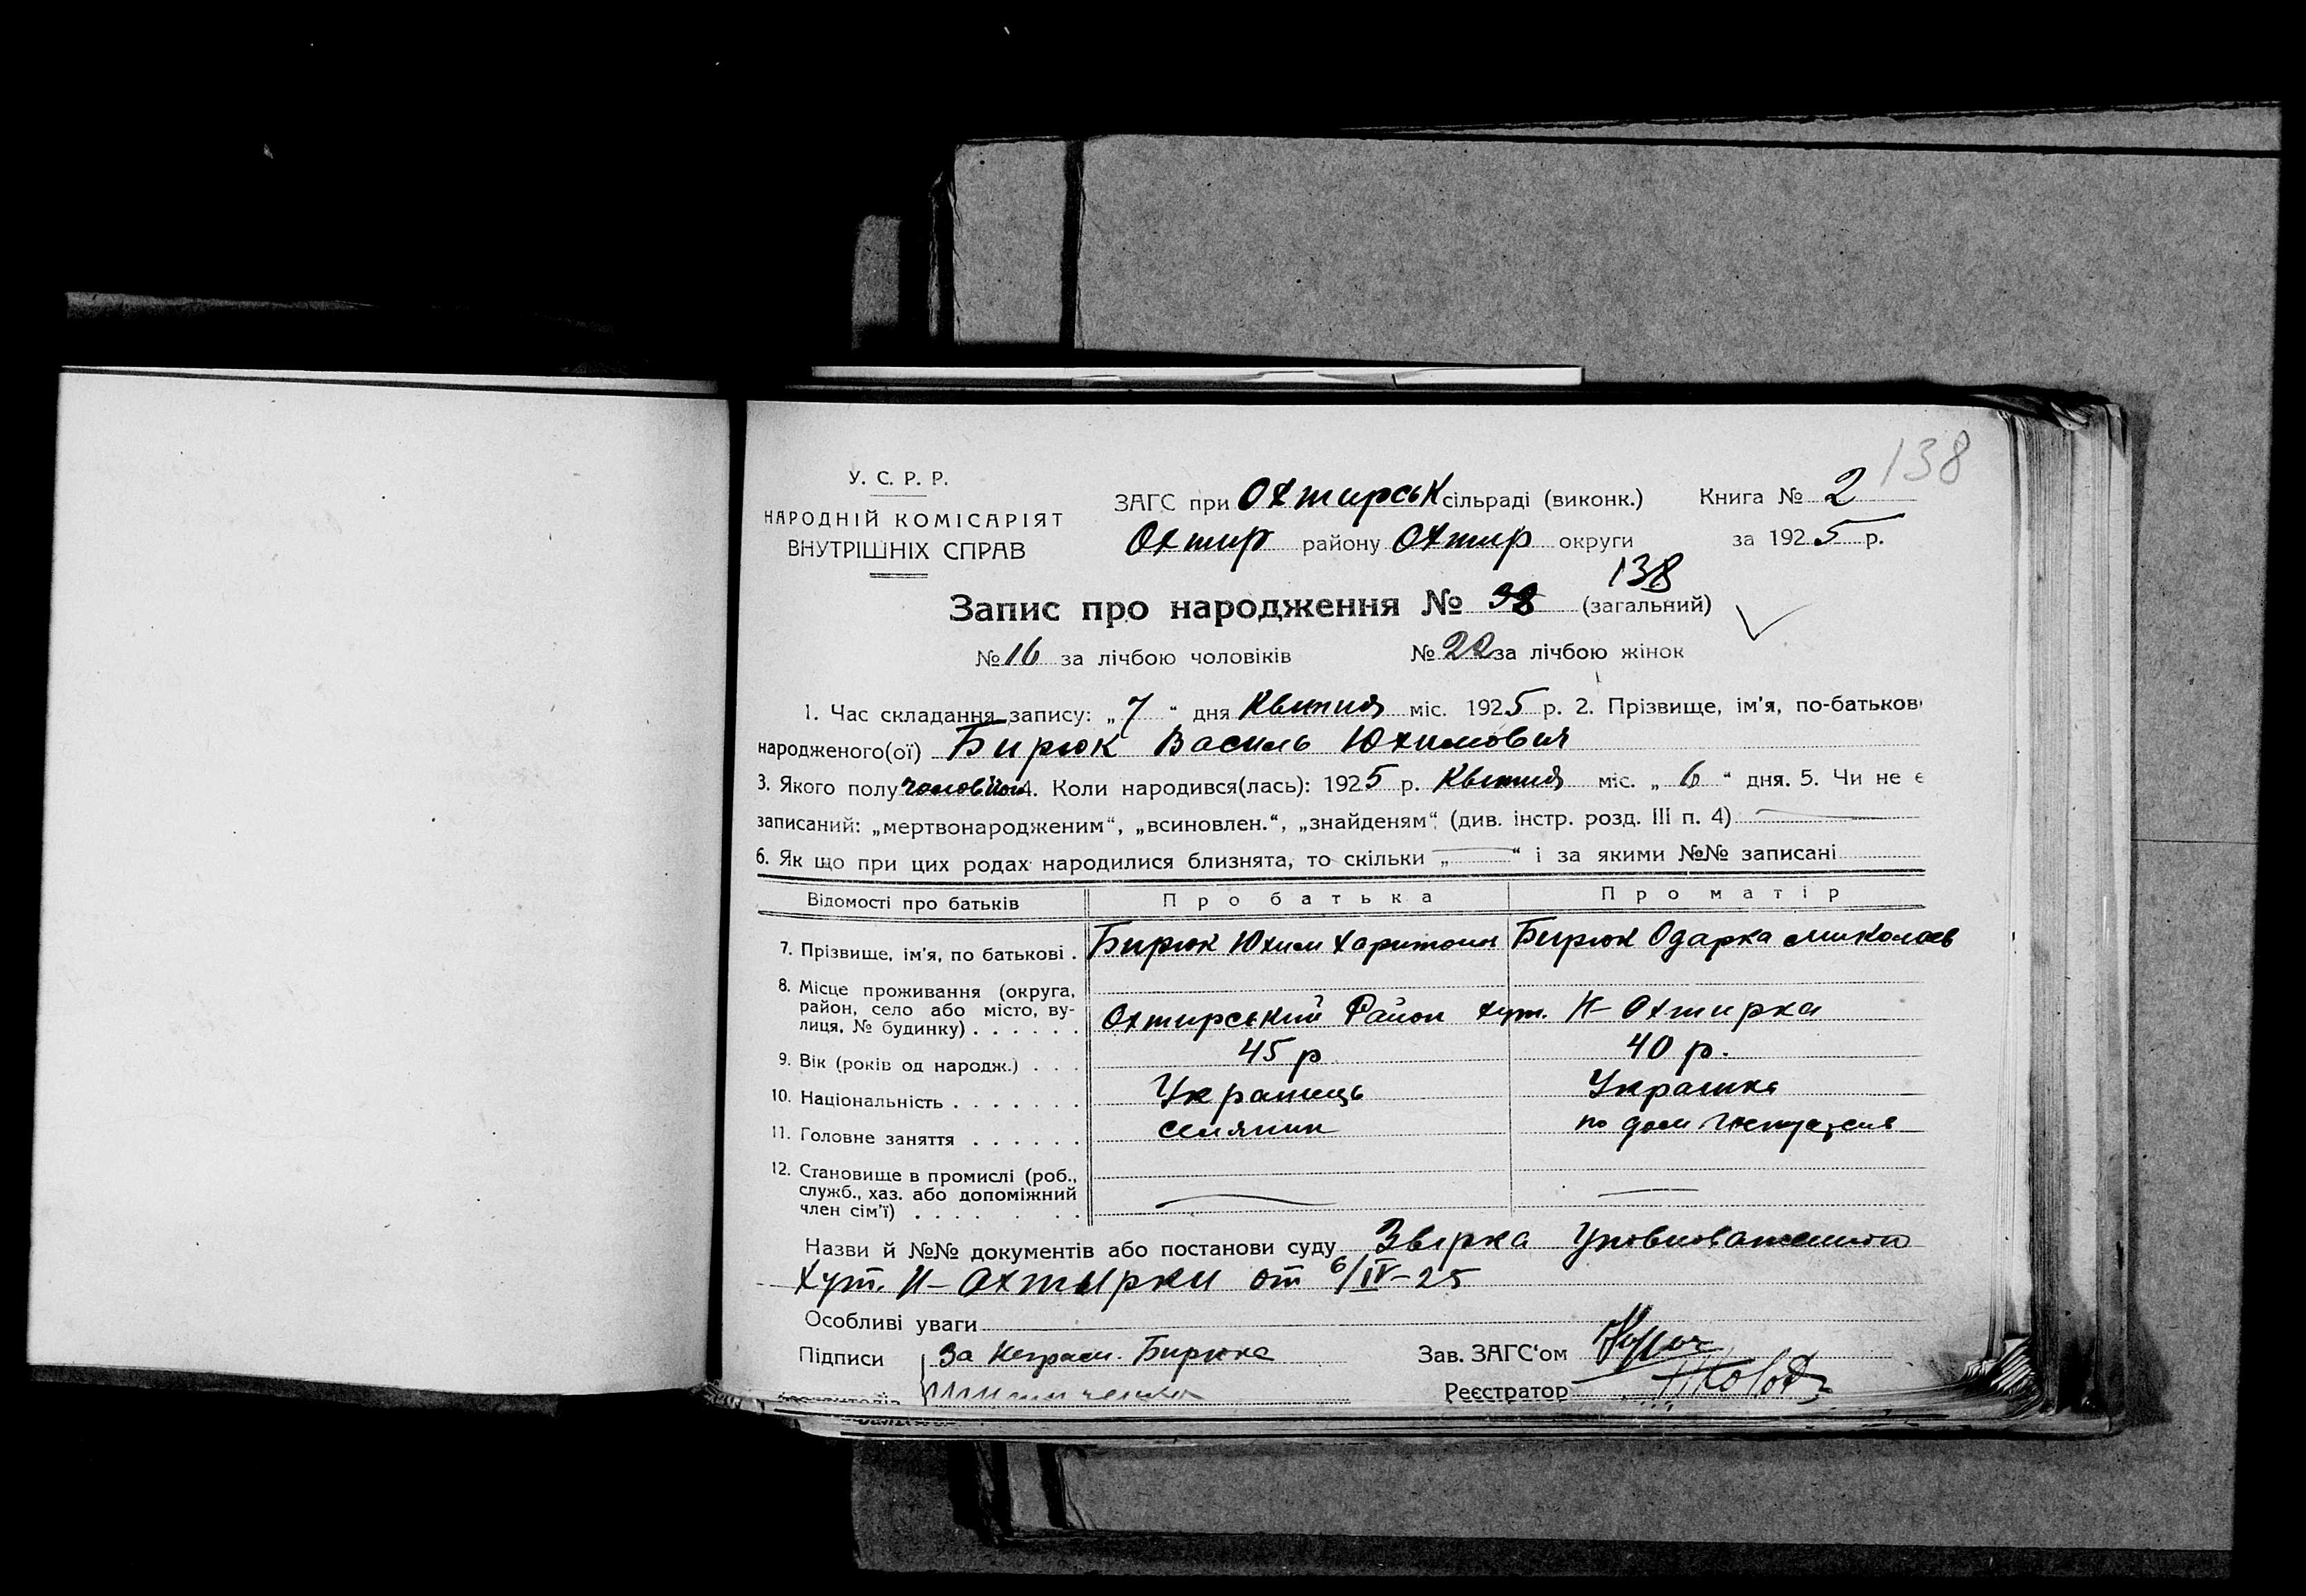 138
У. С. Р. Р.
НАРОДНІЙ КОМІСАРІЯТ
ВНУТРІШНІХ СПРАВ
ЗАГС при Охтирськ сільраді (виконк.) Книга № 2
Охтир району Охтир округи за 1925 р.
138
Запис про народження № 38 (загальний)
№ 16 за лічбою чоловіків № 22 за лічбою жінок
1. Час складання запису: „7“ дня Квітня міс. 1925 р. 2. Прізвище, ім'я, по-батькові
народженого(ої) Бирюк Василь Юхимович
3. Якого полу 4. Коли народився(лась): 1925 р. Квітня міс. „6“ дня. 5. Чи не є
записаний: „мертвонародженим“, „всиновлен.“, „знайденям“ (див. інстр. розд. III п. 4)
6. Як що при цих родах народилися близнята, то скільки „ “ і за якими №№ записані
Відомості про батьків Про батька Про матір
7. Прізвище, ім'я, по батькові . Бирюк Юхим Харитонов Бирюк Одарка Миколаєв
8. Місце проживання (округа,
район, село або місто, ву-
лиця, № будинку) . . . . . . Охтирський Район хут. Н- Охтирка
9. Вік (років од народж.) . . . 45 р 40 р.
10. Національність . . . . . . . Українець Українка
11. Головне заняття . . . . . . селянин по дом
12. Становище в промислі (роб.,
служб., хаз. або допоміжний
член сім'ї) . . . . . . .
Назви й №№ документів або постанови суду Звірка Уповноваженого
Хут. Н- Охтырки от 6/IV-25
Особливі уваги
Підписи За Бирюка Зав. ЗАГС'ом
Реєстратор